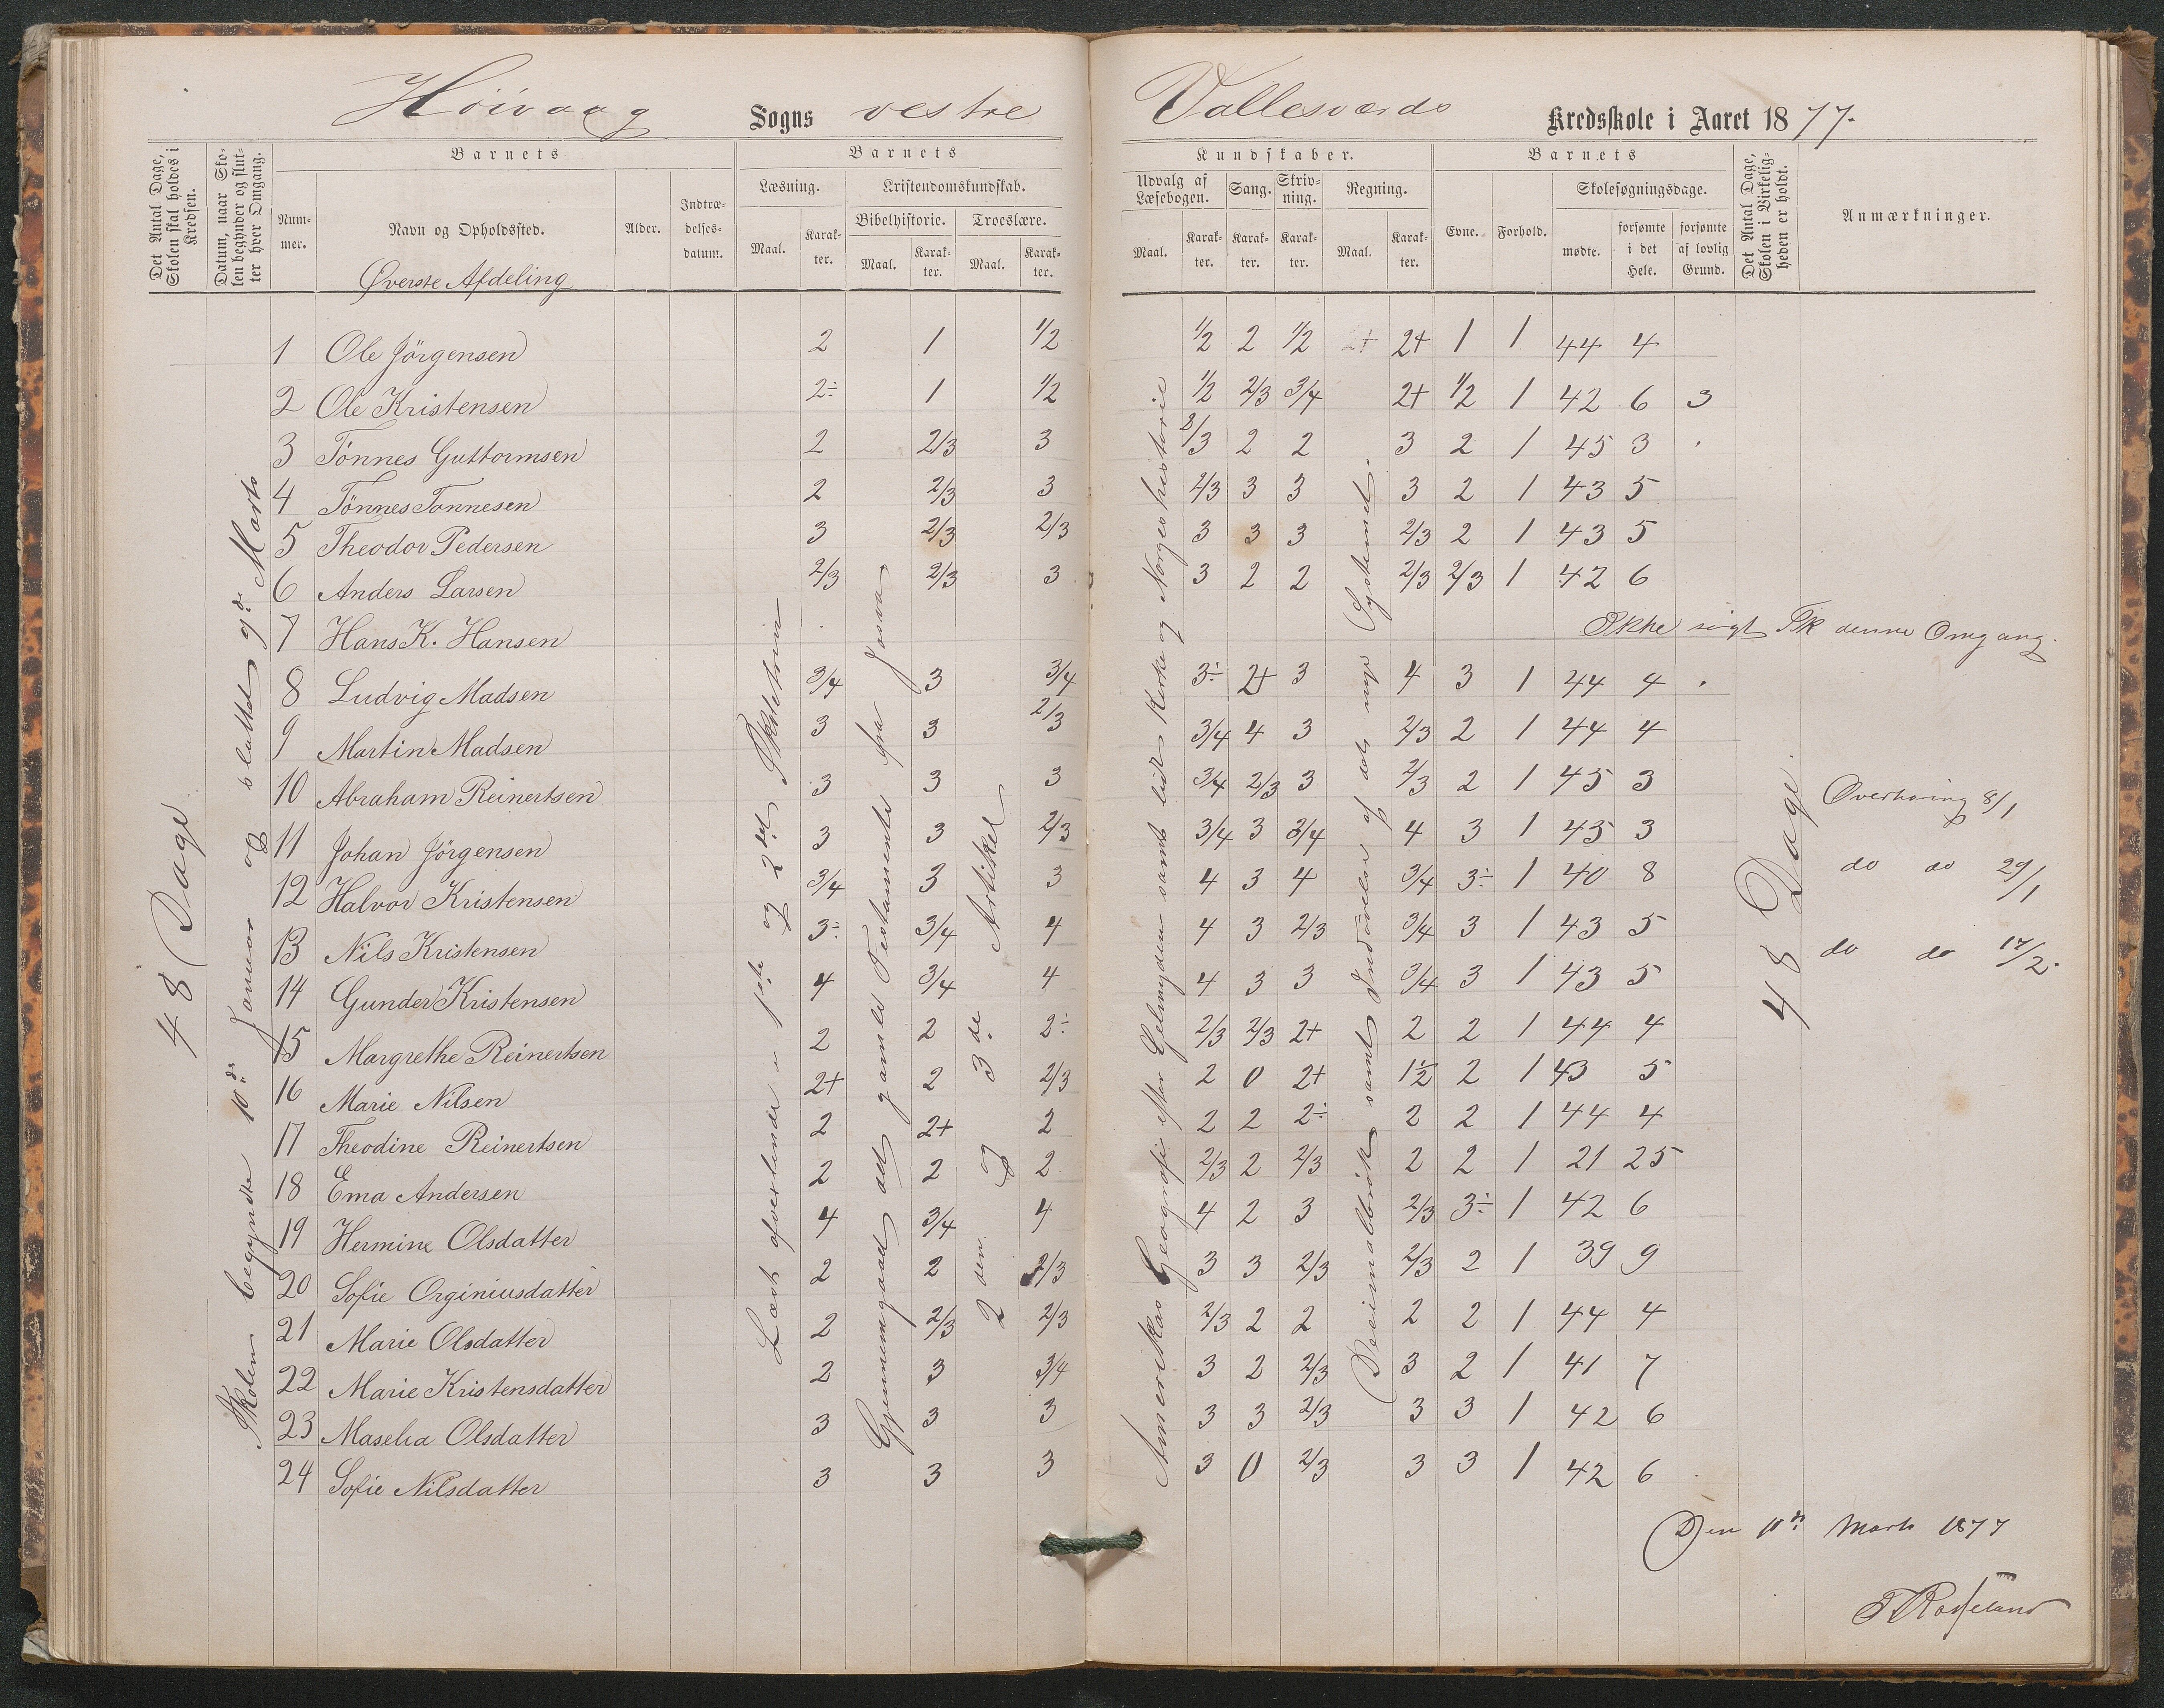 Høivaag Sogns vestre Vallesværds Kredsskole i Aaret 1877.
Det Antal Dage, Skolen skal holdes i Kredsen.
Datum, naar Skolen begynder og slutter hver Omgang.
Barnets
Nummer.
Navn og Opholdssted.
Alder.
Indtrædelsesdatum.
Barnets
Læsning.
Maal.
Karakter.
Kristendomskundskab.
Bibelhistorie.
Maal.
Karakter.
Troeslære.
Maal.
Karakter.
Kundskaber.
Udvalg af Læsebogen.
Maal.
Karakter.
Sang.
Karakter.
Skrivning.
Karakter.
Regning.
Maal.
Karakter.
Barnets
Evne.
Forhold.
Skolesøgningsdage.
mødte.
forsømte i det Hele.
forsømte af lovlig Grund.
Det Antal Dage, Skolen i Virkeligheden er holdt.
Anmærkninger.
Øverste Afdeling
48 Dage
Skolen begyndte 10de Januar og sluttet 9de Marts
Læst afvexlende i 1ste og 2det Skoletrin
Gjennemgaaet det gamle Testamente fra Josva
2den og 3de Artikel
Amerikas Geografi efter Gelmyden samt lidt Kirke og Norgeshistorie
Decimalbrøk samt Indøvelse af det nye System
48 Dage.
1 Ole Jörgensen 2 1 1/2 1/2 2 1/2 2+ 2+ 1 1 44 4
2 Ole Kristensen 2÷ 1 1/2 1/2 2/3 3/4 2+ 1/2 1 42 6 3
3 Tönnes Guttormsen 2 2/3 3 2/3 2 2 3 2 1 45 3
4 Tönnes Tonnesen 2 2/3 3 2/3 3 3 3 2 1 43 5
5 Theodor Pedersen 3 2/3 2/3 3 3 3 2/3 2 1 43 5
6 Anders Larsen 2/3 2/3 3 3 2 2 2/3 2/3 1 42 6
7 Hans K. Hansen Ikke søgt Sk denne Omgang.
8 Ludvig Madsen 3/4 3 3/4 3÷ 2+ 3 4 3 1 44 4
9 Martin Madsen 3 3 2/3 3/4 4 3 2/3 2 1 44 4
10 Abraham Reinertsen 3 3 3 3/4 2/3 3 2/3 2 1 45 3 Overhøring 8/1
11 Johan Jörgensen 3 3 2/3 3/4 3 3/4 4 3 1 45 3
12 Halvor Kristensen 3/4 3 3 4 3 4 3/4 3÷ 1 40 8 do do 29/1
13 Nils Kristensen 3÷ 3/4 4 4 3 2/3 3/4 3 1 43 5 do do 17/2.
14 Gunder Kristensen 4 3/4 4 4 3 3 3/4 3 1 43 5
15 Margrethe Reinertsen 2 2 2÷ 2/3 2/3 2+ 2 2 1 44 4
16 Marie Nilsen 2+ 2 2/3 2 0 2+ 1½ 2 1 43 5
17 Theodine Reinertsen 2 2+ 2 2 2 2÷ 2 2 1 44 4
18 Ema Andersen 2 2 2 2/3 2 2/3 2 2 1 21 25
19 Hermine Olsdatter 4 3/4 4 4 2 3 2/3 3÷ 1 42 6
20 Sofie Orginiusdatter 2 2 2/3 3 3 2/3 2/3 2 1 39 9
21 Marie Olsdatter 2 2/3 2/3 2/3 2 2 2 2 1 44 4
22 Marie Kristensdatter 2 3 3/4 3 2 2/3 3 2 1 41 7
23 Maselia Olsdatter 3 3 3 3 3 2/3 3 3 1 42 6
24 Sofie Nilsdatter 3 3 3 3 0 2/3 3 3 1 42 6
Den 11te Marts 1877